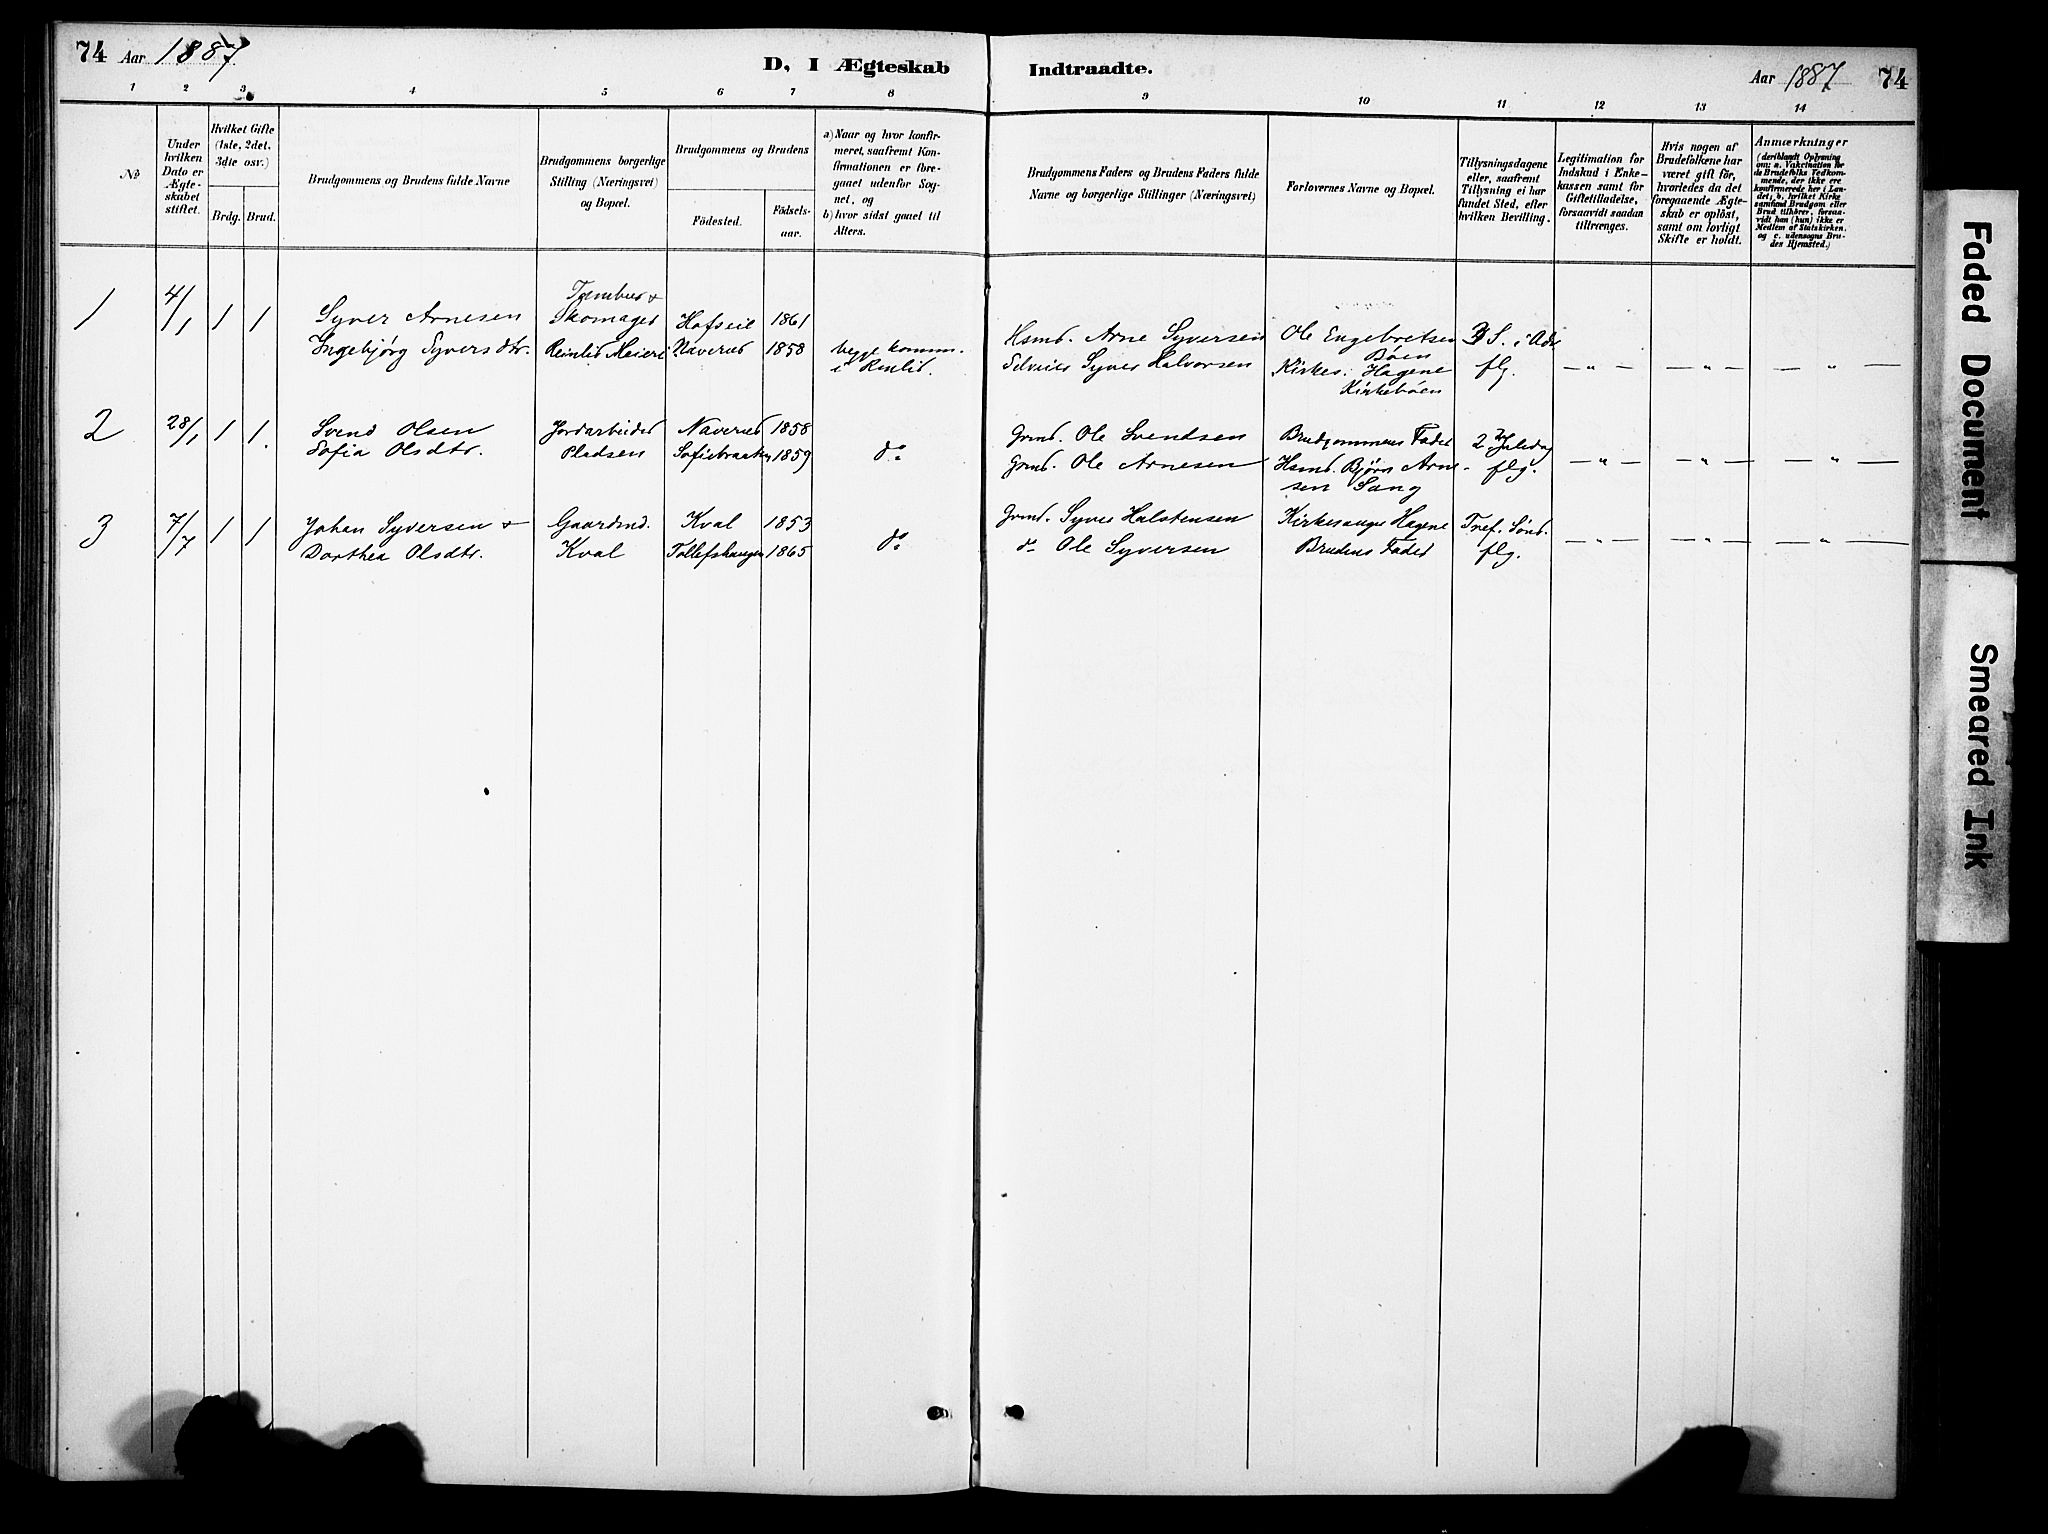 74 Aar 1887
D, I Ægteskab Indtraadte.
Aar 1887 74
1 2 3 4 5 6 7 8 9 10 11 12 13 14
No
Under hvilken Dato er Ægteskabet stiftet.
Hvilket Gifte (1ste, 2det, 3dte osv.)
Brdg. Brud.
Brudgommens og Brudens fulde Navne
Brudgommens borgerlige Stilling (Næringsvei) og Bopæl.
Brudgommens og Brudens
Födested.
Födsels-aar.
a) Naar og hvor konfirmeret, saafremt Konfirmationen er foregaaet udenfor Sognet, og
b) hvor sidst gaaet til Alters.
Brudgommens Faders og Brudens Faders fulde Navne og borgerlige Stillinger (Næringsvei)
Forlovernes Navne og Bopæl.
Tillysningsdagene eller, saafremt Tillysning ei har fundet Sted, efter hvilken Bevilling.
Legitimation for Indskud i Enkekassen samt for Giftetilladelse, forsaavidt saadan tiltrænges.
Hvis nogen af Brudefolkene har været gift för, hvorledes da det foregaaende Ægteskab er oplöst, samt om lovligt Skifte er holdt.
Anmærkninger
(deriblandt Oplysning om: a. Vakcination for de Brudefolks Vedkommende, der ikke ere konfirmerede her i Landet; b. hvilket Kirkesamfund Brudgom eller Brud tilhører, forsaavidt han (hun) ikke er Medlem af Statskirken. og c. udensogns Brudes Hjemsted.)
1 4/1 1 1 Syver Arnesen Skomager Hofseie 1861 Hsmd. Arne Syversen Ole Engebretsen Bøen 3 S. i Adv
Ingebjørg Syversdtr. Reinlid Meieri Naverud 1858 begge komm. i Reinlid. Syver Halvorsen Kirkes. Hagene Kirkebøen flg. — " — — " — — " —
2 28/1 1 1. Svend Olsen Jordarbeider Naverud 1858 Grmd. Ole Svendsen Brudgommens Fader 2 Juledag
Sofia Olsdtr. Pladsen Sofiebraaten 1859 do Grmd. Ole Arnesen Hsmd. Bjørn Arnesen Sang flg. — " — — " — — " —
3 7/7 1 1 Johan Syversen & Gaardmd. Kval 1853 Grmd. Syver Halstensen Kirkesanger Hagene Tref. Sönd.
Dorthea Olsdtr. Kval Tollefshaugen 1865 do do Ole Syversen Brudens Fader flg. — " — — " — — " —
Faded Document
Smeared Ink